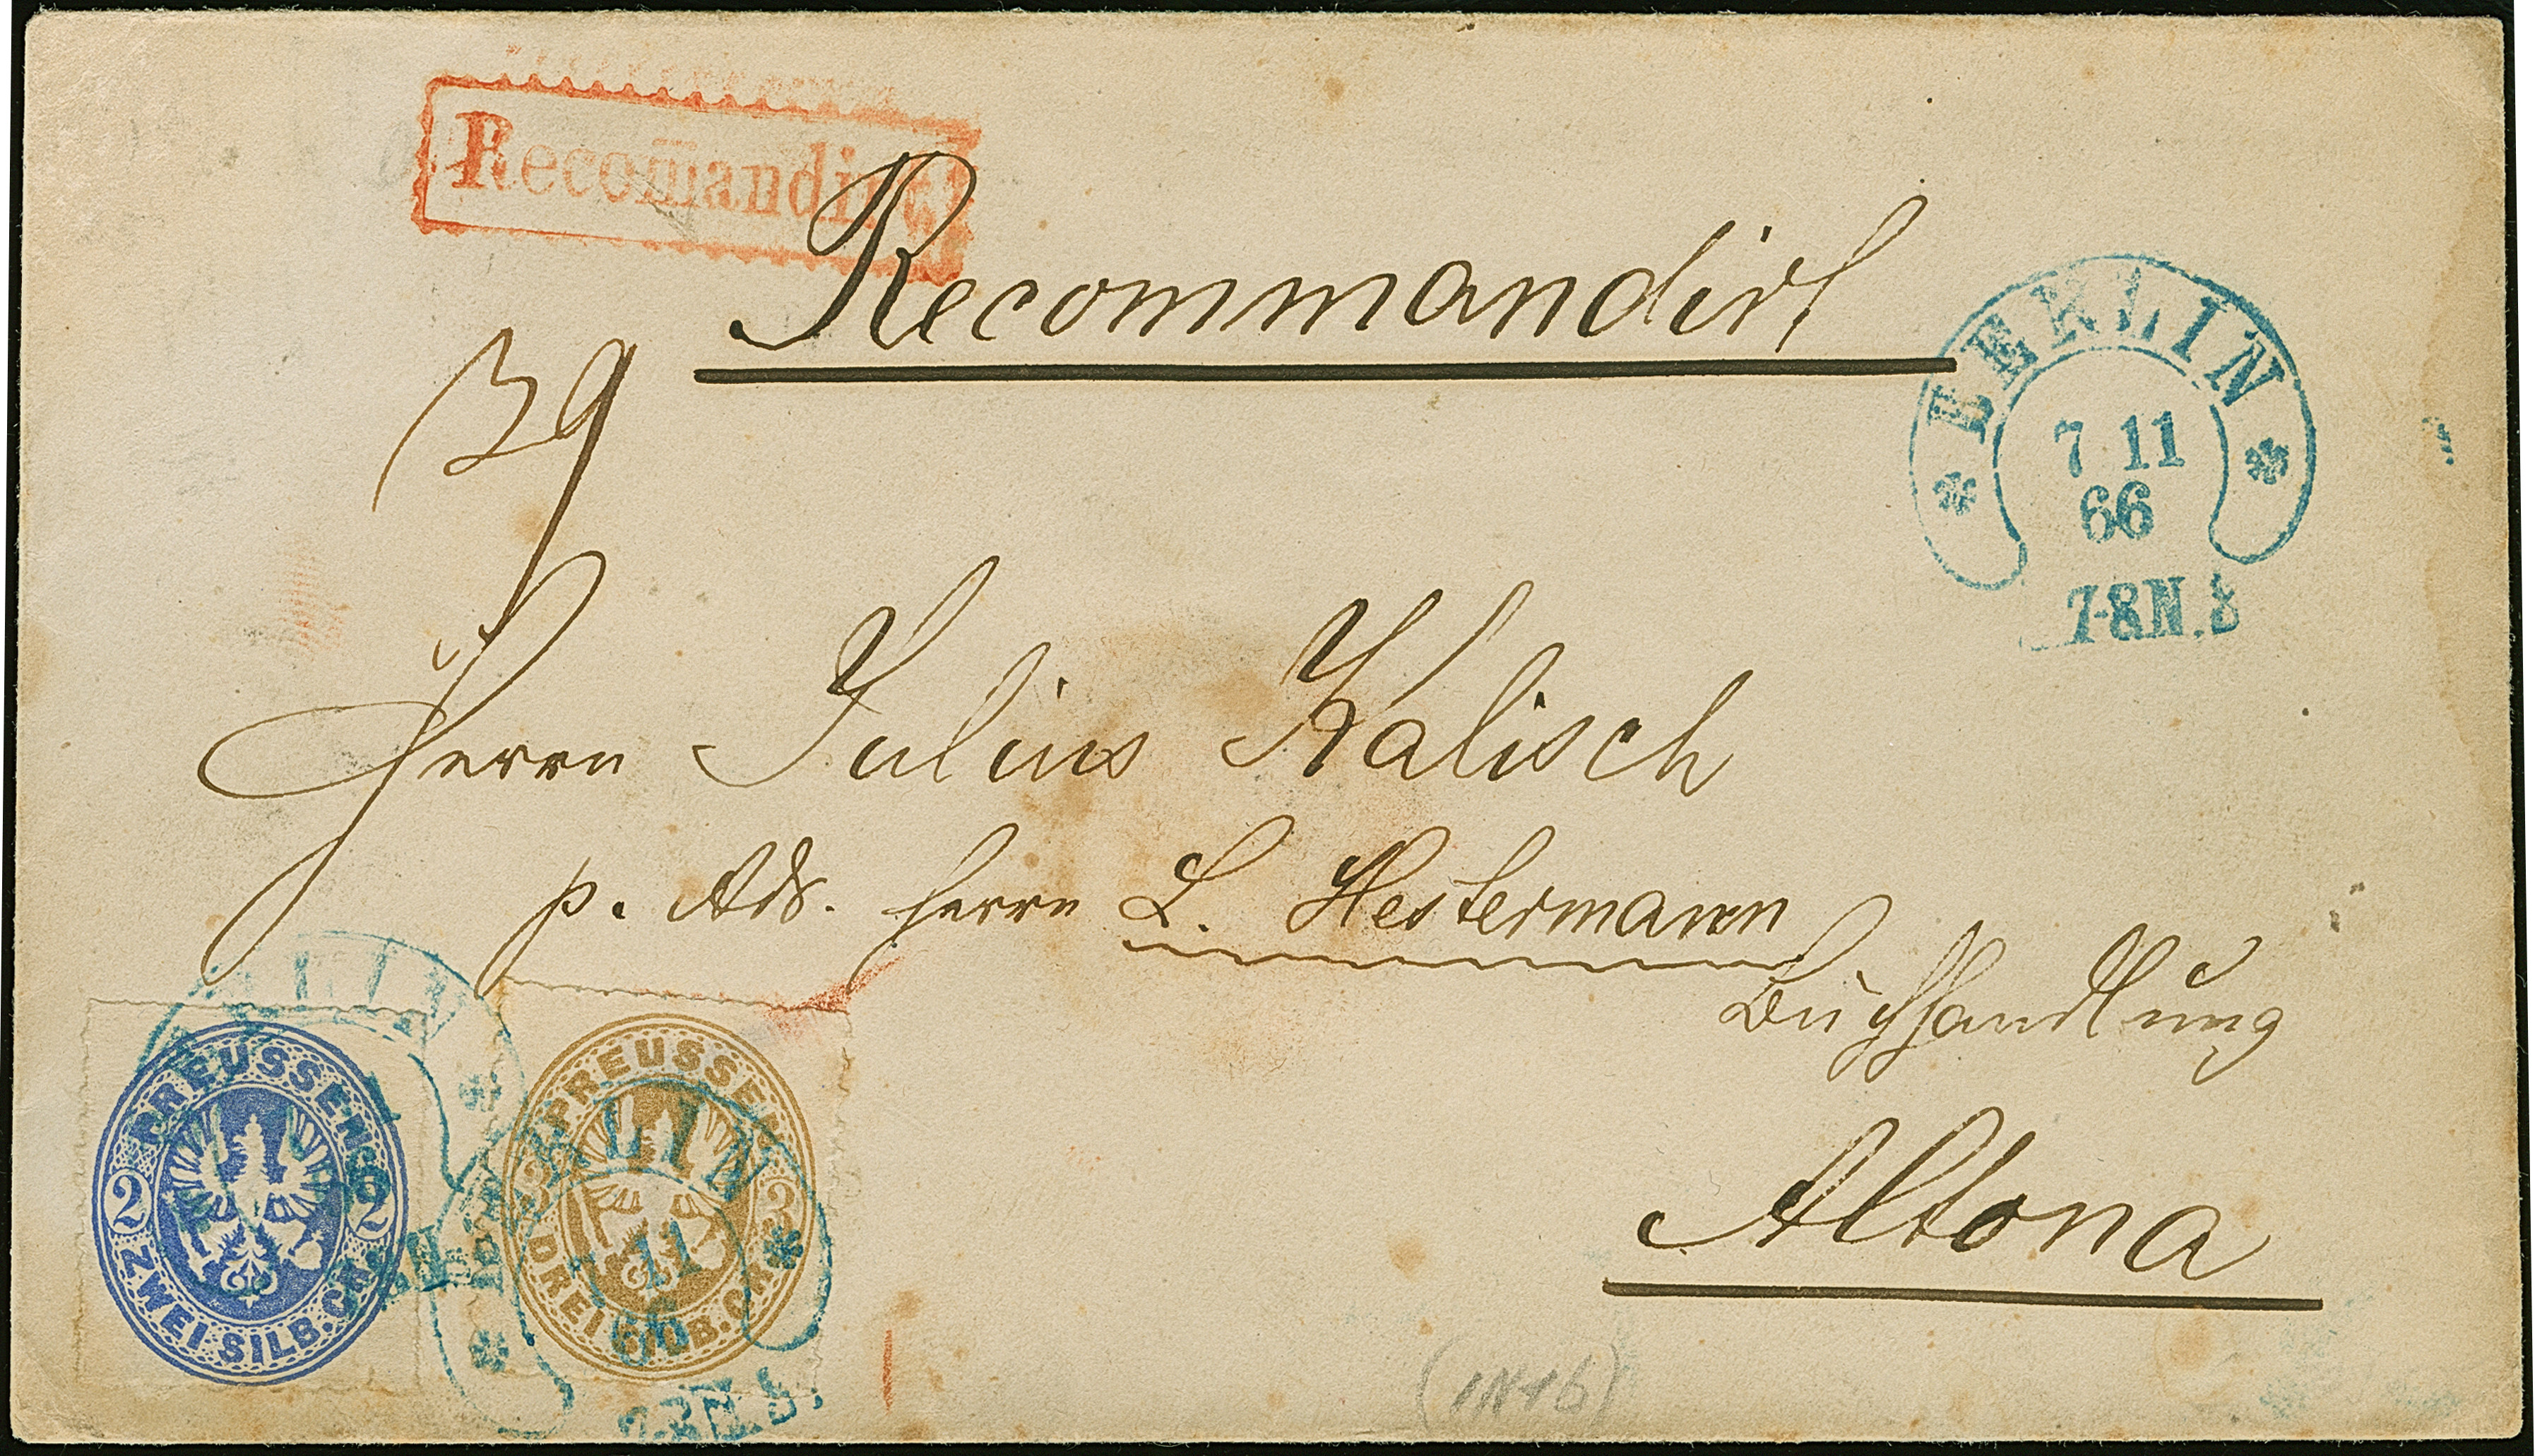 Recom̄andirt
Recommandirt
39
BERLIN
7 11
66
7-8 N.
Herrn Julius Kalisch
p. Adr. Herrn L. Hestermann
Buchhandlung
Altona
PREUSSEN
2 2
ZWEI SILB. GR.
PREUSSEN
3 3
DREI SILB. GR.
BERLIN
7 11
66